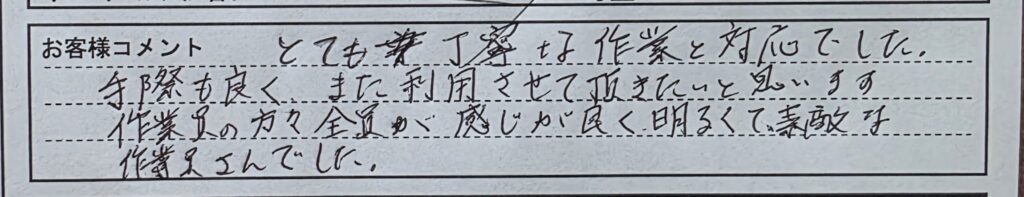 お客様コメント とても丁寧な作業と対応でした。
手際も良く、また利用させて頂きたいと思います
作業員の方々全員が感じが良く明るくて、素敵な
作業員さんでした。